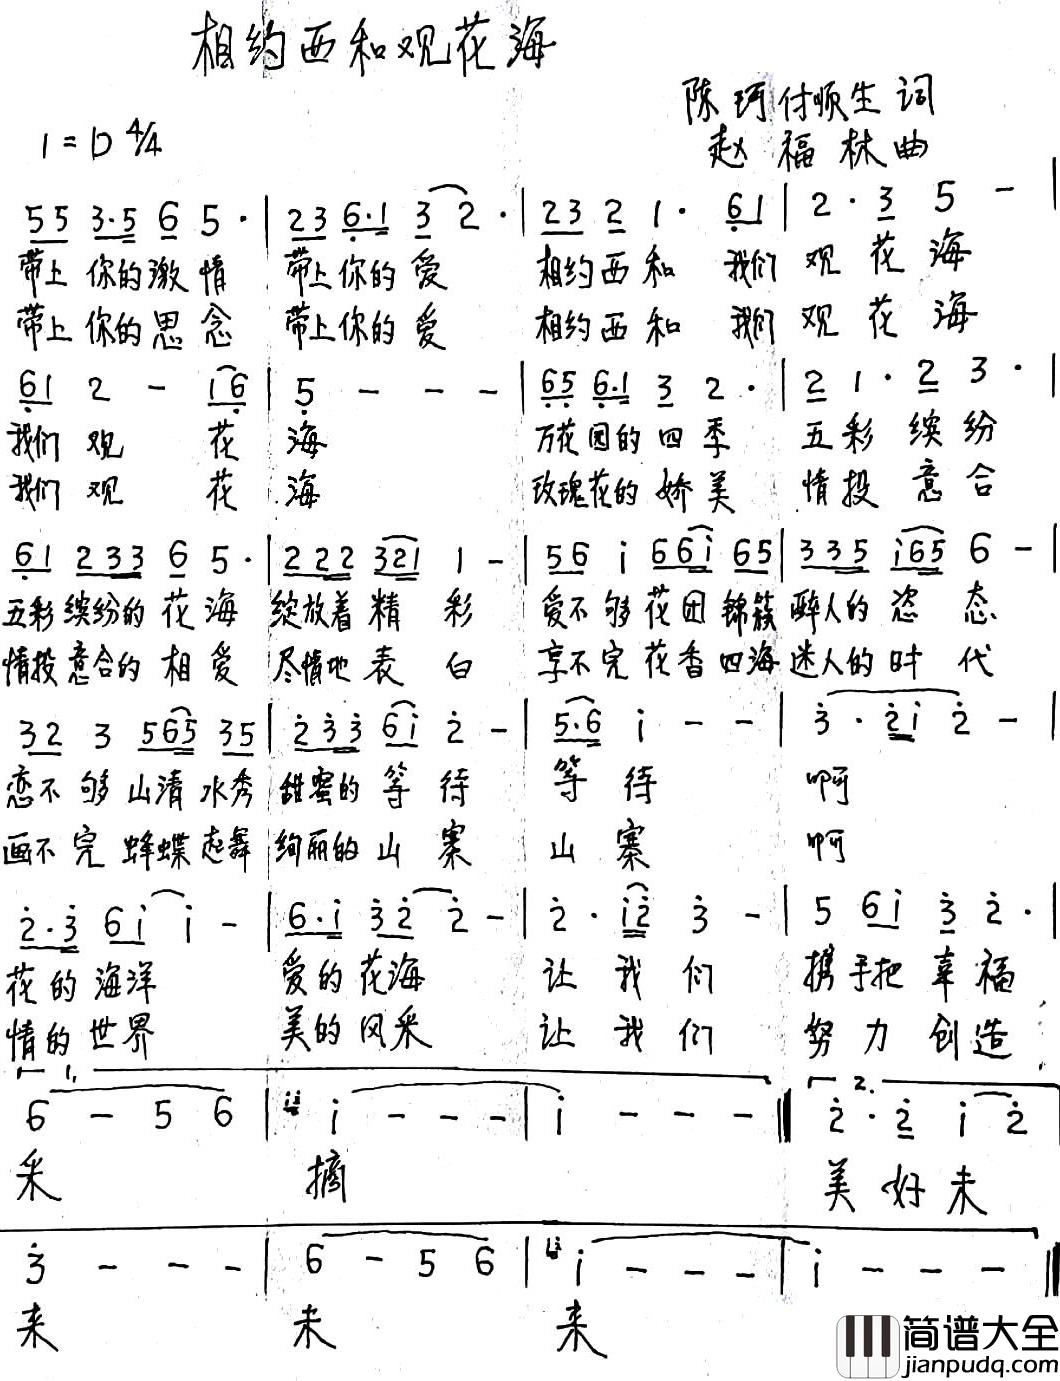 相约西和观花海
陈珂付顺生词
1=D 4/4
赵福林曲
55 3·5 6 5· | 23 6·1 3 2· | 23 2 1· 61 | 2·3 5 - |
带上你的激情 带上你的爱 相约西和 我们 观花海
带上你的思念 带上你的爱 相约西和 我们 观花海
61 2 - i6 | 5 - - - | 65 6·1 3 2· | 2 1· 2 3· |
我们观 花 海 万花园的四季 五彩缤纷
我们观 花 海 玫瑰花的娇美 情投意合
61 233 6 5· | 222 321 1 - | 56 i 66i 65 | 335 i65 6 - |
五彩缤纷的花海 绽放着精彩 爱不够花团锦簇 醉人的恣态
情投意合的相爱 尽情地表白 享不完花香四海 迷人的时代
32 3 565 35 | 233 6i 2 - | 5·6 i - - | 3·2i 2 - |
恋不够山清水秀 甜蜜的等待 等待 啊
画不完蜂蝶起舞 绚丽的山寨 山寨 啊
2·3 6i i - | 6·i 32 2 - | 2·i2 3 - | 5 6i 3 2·
花的海洋 爱的花海 让我们 携手把幸福
情的世界 美的风采 让我们 努力创造
1. 2.
6 - 5 6 | i - - - | i - - - ‖ 2·2 i 2
采 摘 美好未
3 - - - | 6 - 5 6 | i - - - | i - - - ‖
来 未 来
简谱大全
jianpudq.com